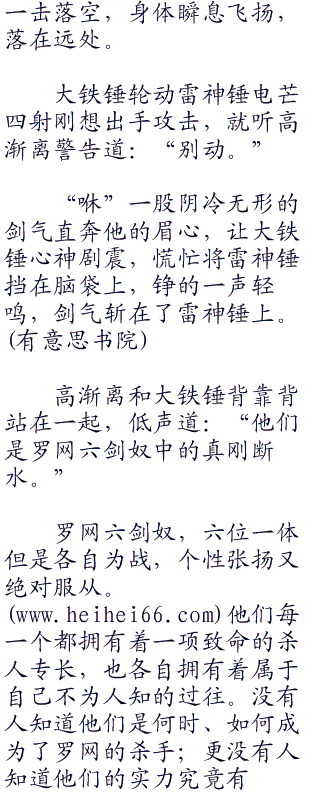 一击落空，身体瞬息飞扬，
落在远处。
大铁锤轮动雷神锤电芒
四射刚想出手攻击，就听高
渐离警告道：“别动。”
“咻”一股阴冷无形的
剑气直奔他的眉心，让大铁
锤心神剧震，慌忙将雷神锤
挡在脑袋上，铮的一声轻
鸣，剑气斩在了雷神锤上。
(有意思书院)
高渐离和大铁锤背靠背
站在一起，低声道：“他们
是罗网六剑奴中的真刚断
水。”
罗网六剑奴，六位一体
但是各自为战，个性张扬又
绝对服从。
(www.heihei66.com)他们每
一个都拥有着一项致命的杀
人专长，也各自拥有着属于
自己不为人知的过往。没有
人知道他们是何时、如何成
为了罗网的杀手；更没有人
知道他们的实力究竟有